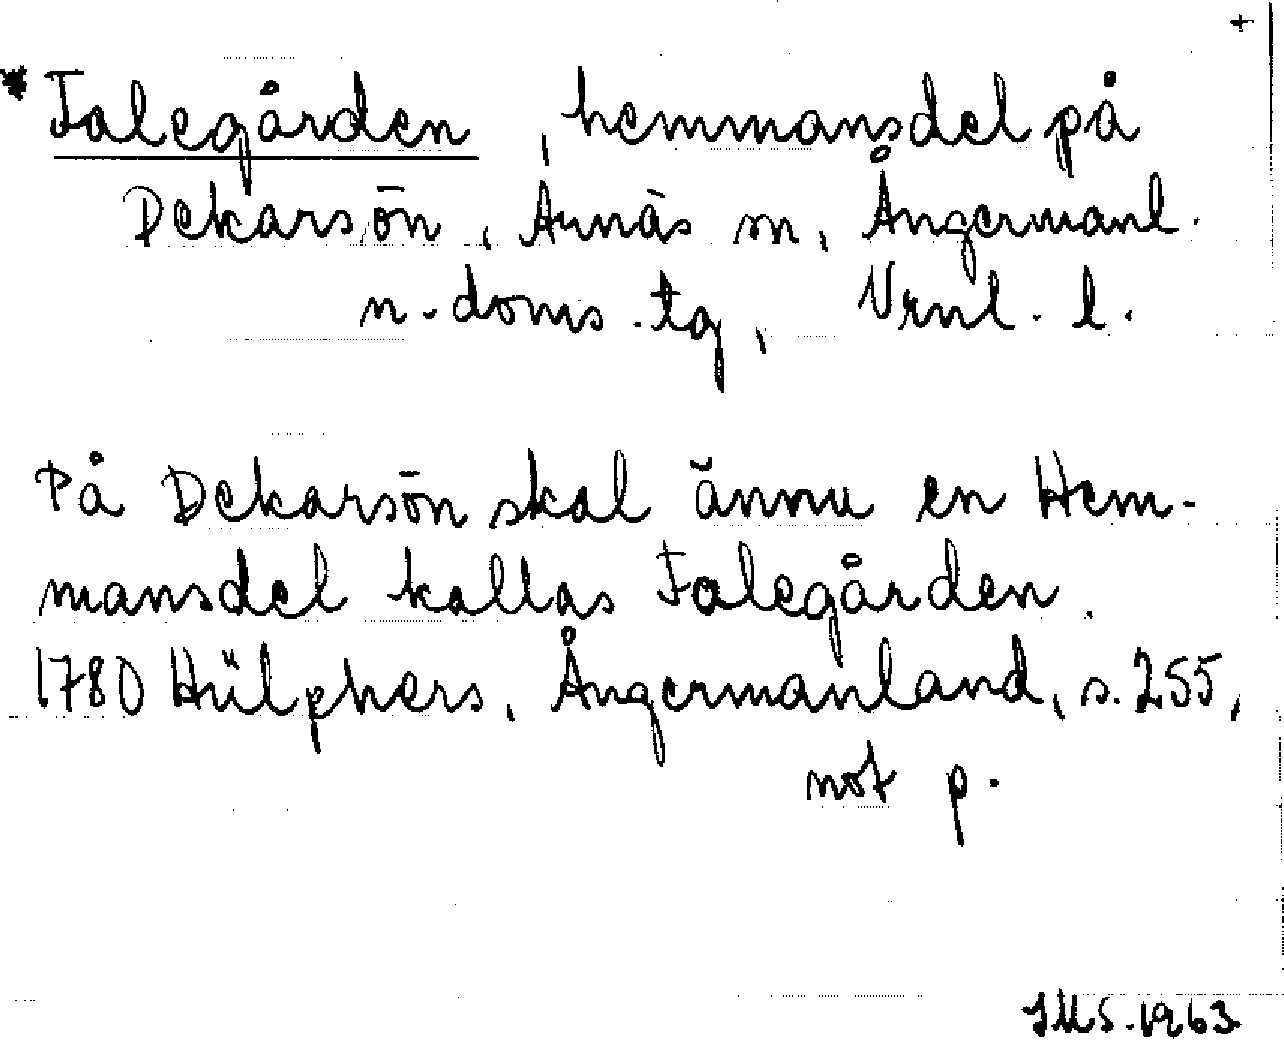 +
* Falegården, hemmansdel på
Dekarsön, Arnäs sn, Ångermanl.
n. doms. tg, Vrnl. l.
På Dekarsön skal ännu en Hem-
mansdel kallas Falegården.
1780 Hülphers, Ångermanland, s. 255,
not p.
IMS. 1963